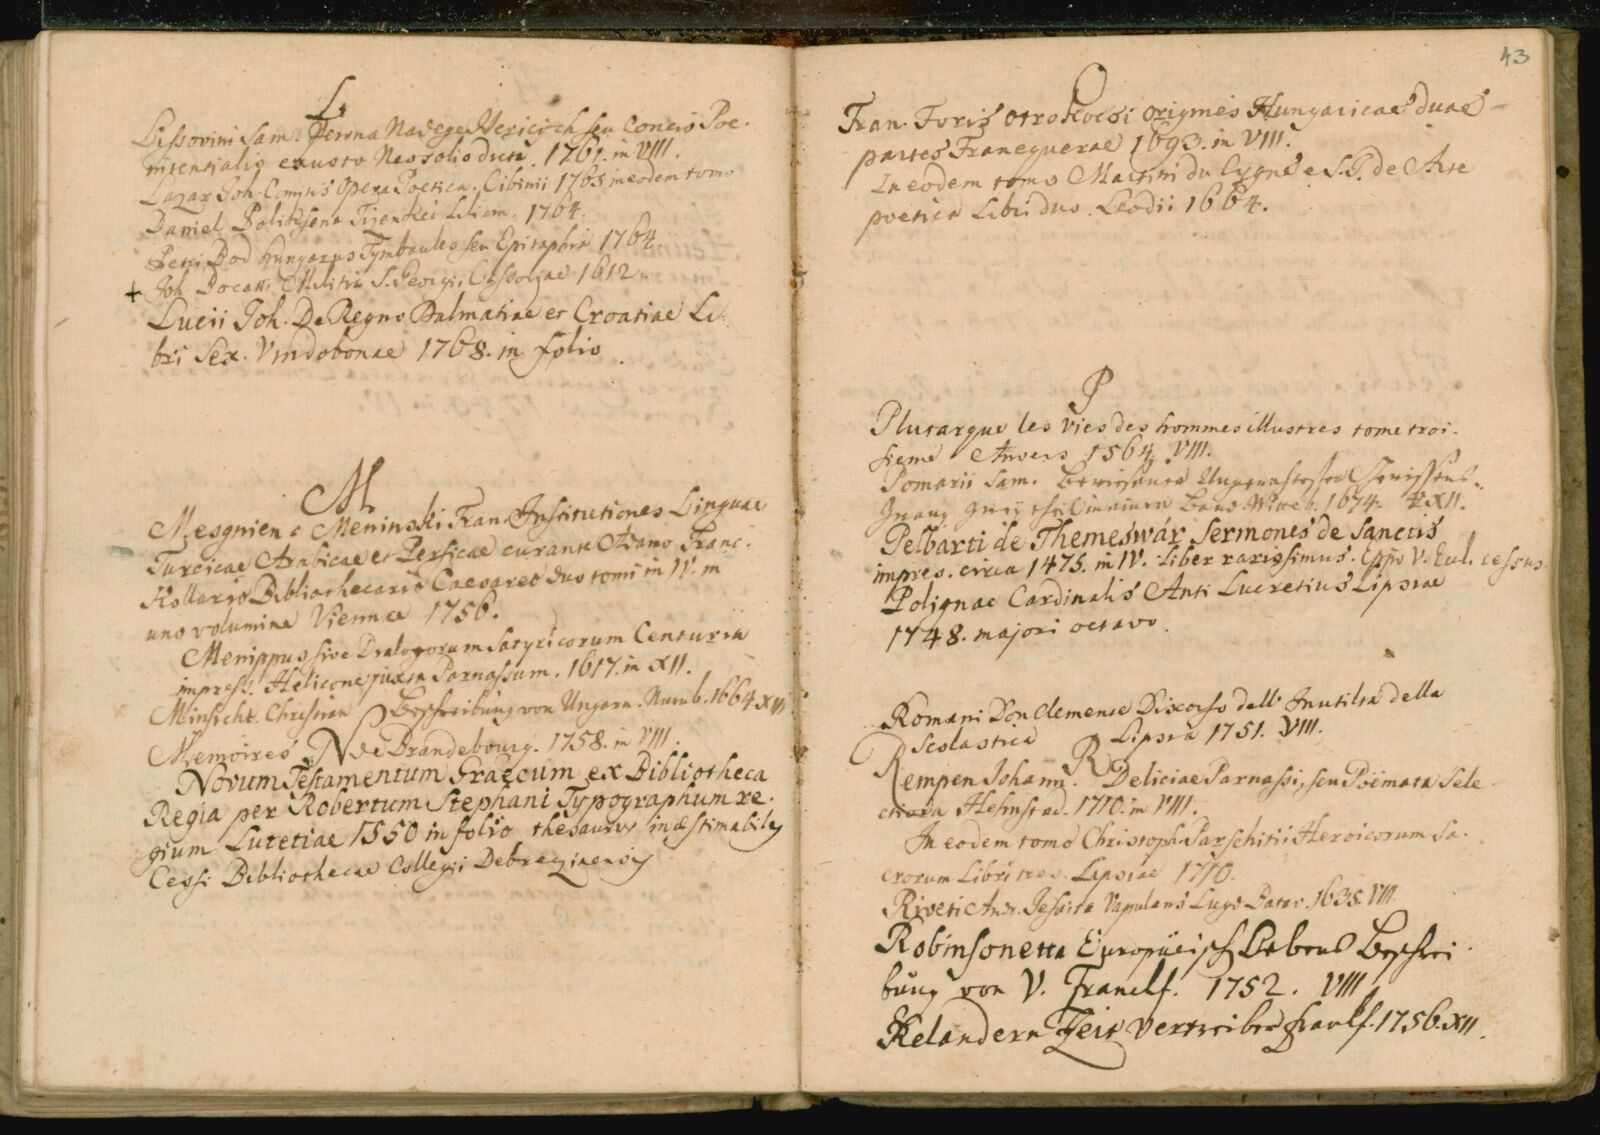 L.
Lissovini Sam. Perena Nadege Nericich seu Concio Poe.
nitentialis exusto Neosolio dicta. 1761. in VIII.
Lazar Joh. Comitis Opera Poetica. Cibinii 1765 in eodem tomo
Daniel Polixena 1764.
Petri Bod Hungarus Tymbaules seu Epitaphia 1764.
+ Joh. Bocatii Militia S. Georgii Cassoviae 1612.
Lucii Joh. De Regno Dalmatiae et Croatiae Li.
bri Sex. Vindobonae 1768. in folio.
M
Mesgnien a Meninski Fran. Institutiones Linguae
Turcicae Arabicae et Persicae curante Adamo Franc.
Kollario Bibliothecario Caesareo duo tomi in IV. in
uno volumine Viennae 1756.
Menippus sive Dialogorum Satyricorum Centuria
impress. Helicone juxta Parnassum. 1617. in XII.
Minsicht Christian Beschreibung von Ungarn. Nurnb. 1664 XII
Memoires de Brandebourg. 1758. in VIII.
N
Novum Testamentum Graecum ex Bibliotheca
Regia per Robertum Stephani Typographum re.
gium Lutetiae 1550 in folio thesaurus inæstimabilis
Cessi Bibliothecae Collegii Debrezinensis
43
O
Fran. Foris Otrokocsi origines Hungaricae duae
partes Franequerae 1693. in VIII.
In eodem tomo Martini du Cygne e S. J. de Arte
poetica Libri duo. Leodii 1664.
P
Plutarque les vies des hommes illustres tome troi.
sieme Anvers 1564. VIII.
Pomarii Sam. 1674. XII.
Pelbarti de Themeswár Sermones de Sanctis
impres. circa 1475. in IV. Liber rarissimus. Eppo V. Eul. cessus
Polignac Cardinalis Anti Lucretius Lipsiae
1748. majori octavo.
Romani Don Clemente Discorso dell' Inutilta della
Scolastica Lipsia 1751. VIII.
R
Rempen Johann. Deliciae Parnassi, seu Poëmata Sele
ctiora Helmstad. 1710. in VIII.
In eodem tomo Christoph. Parschitii Heroicorum Sa.
crorum Libri tres. Lipsiae 1710.
Riveti Andr. Jesuita Vapulans Lugd. Batav. 1635. VIII.
Robinsonetta Europäisch Lebens Beschrei
bung von V. Franckf. 1752. VIII
Relandern Zeit vertreiber Frankf. 1756. XII.